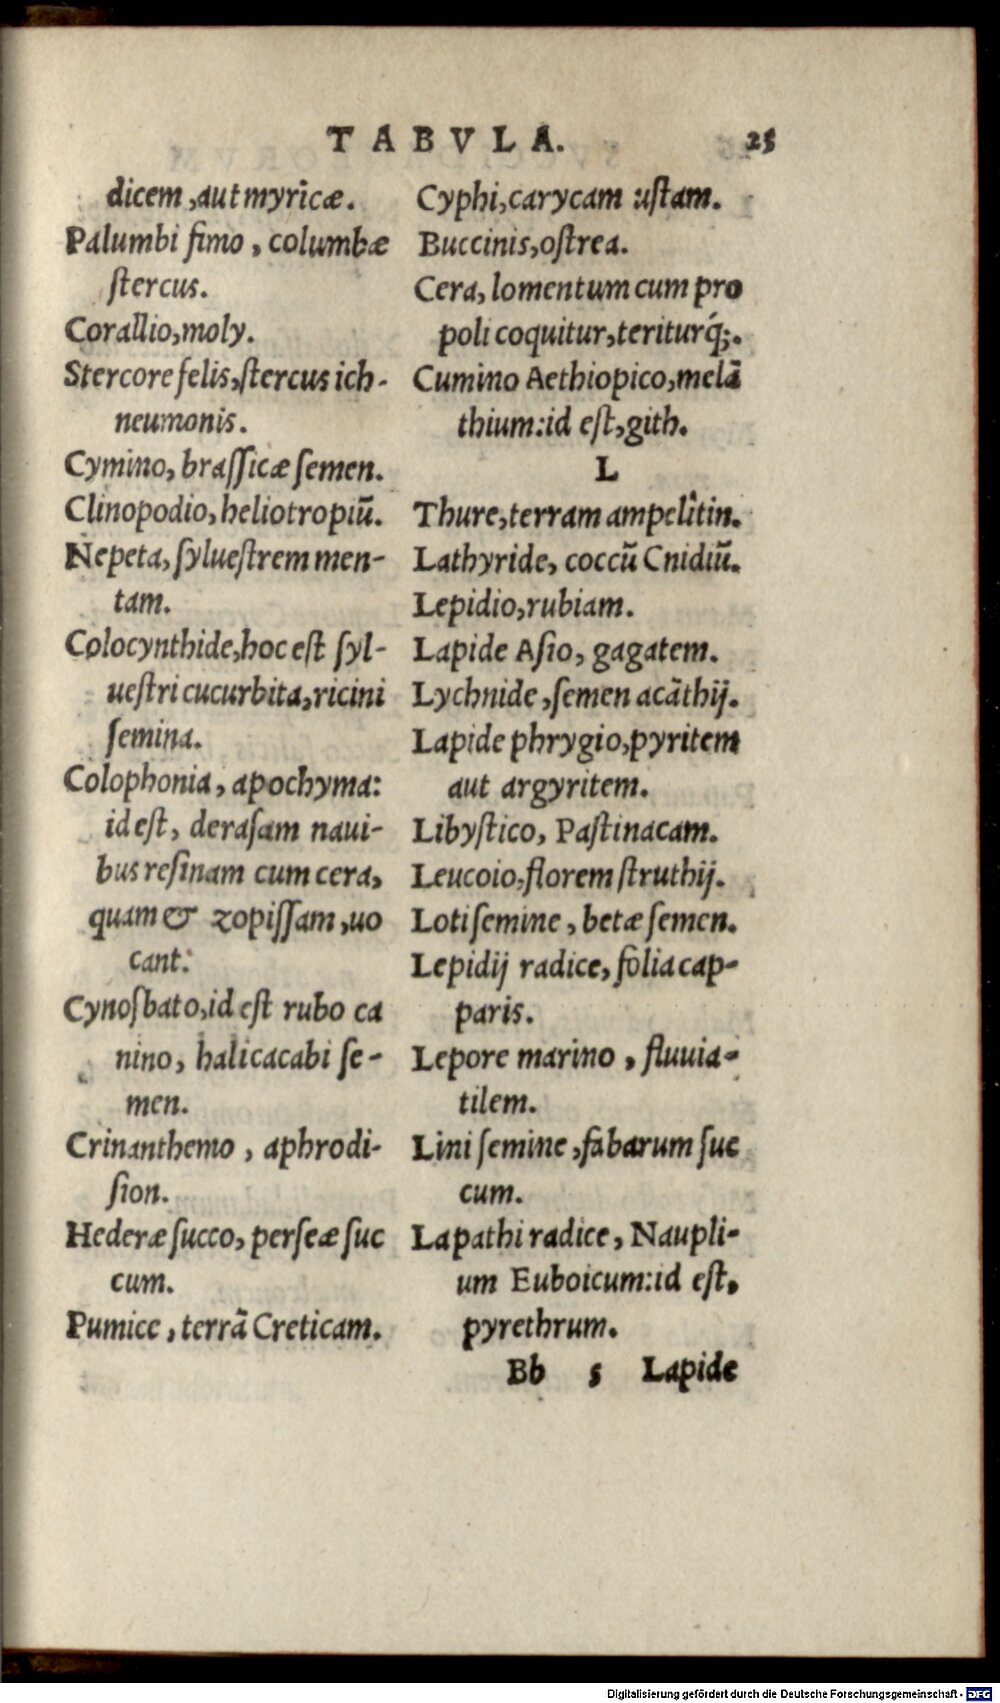 TABVLA. 25
dicem, aut myricæ.
Palumbi fimo, columbæ
ſtercus.
Corallio, moly.
Stercore felis, ſtercus ich-
neumonis.
Cymino, braſſicæ ſemen.
Clinopodio, heliotropiũ.
Nepeta, ſylueſtrem men-
tam.
Colocynthide, hoc eſt ſyl-
ueſtri cucurbita, ricini
ſemina.
Colophonia, apochyma:
id eſt, deraſam naui-
bus reſinam cum cera,
quam & zopiſſam, uo
cant.
Cynoſbato, id eſt rubo ca
nino, halicacabi ſe-
men.
Crinanthemo, aphrodi-
ſion.
Hederæ ſucco, perſeæ ſuc
cum.
Pumice, terrã Creticam.
Cyphi, carycam uſtam.
Buccinis, oſtrea.
Cera, lomentum cum pro
poli coquitur, teriturq́;.
Cumino Aethiopico, melã
thium: id eſt, gith.
L
Thure, terram ampelîtin.
Lathyride, coccũ Cnidiũ.
Lepidio, rubiam.
Lapide Aſio, gagatem.
Lychnide, ſemen acãthij.
Lapide phrygio, pyritem
aut argyritem.
Libyſtico, Paſtinacam.
Leucoio, florem ſtruthij.
Loti ſemine, betæ ſemen.
Lepidij radice, folia cap-
paris.
Lepore marino, fluuia-
tilem.
Lini ſemine, fabarum ſuc
cum.
Lapathi radice, Naupli-
um Euboicum: id eſt,
pyrethrum.
Bb 5 Lapide
Digitalisierung gefördert durch die Deutsche Forschungsgemeinschaft - DFG